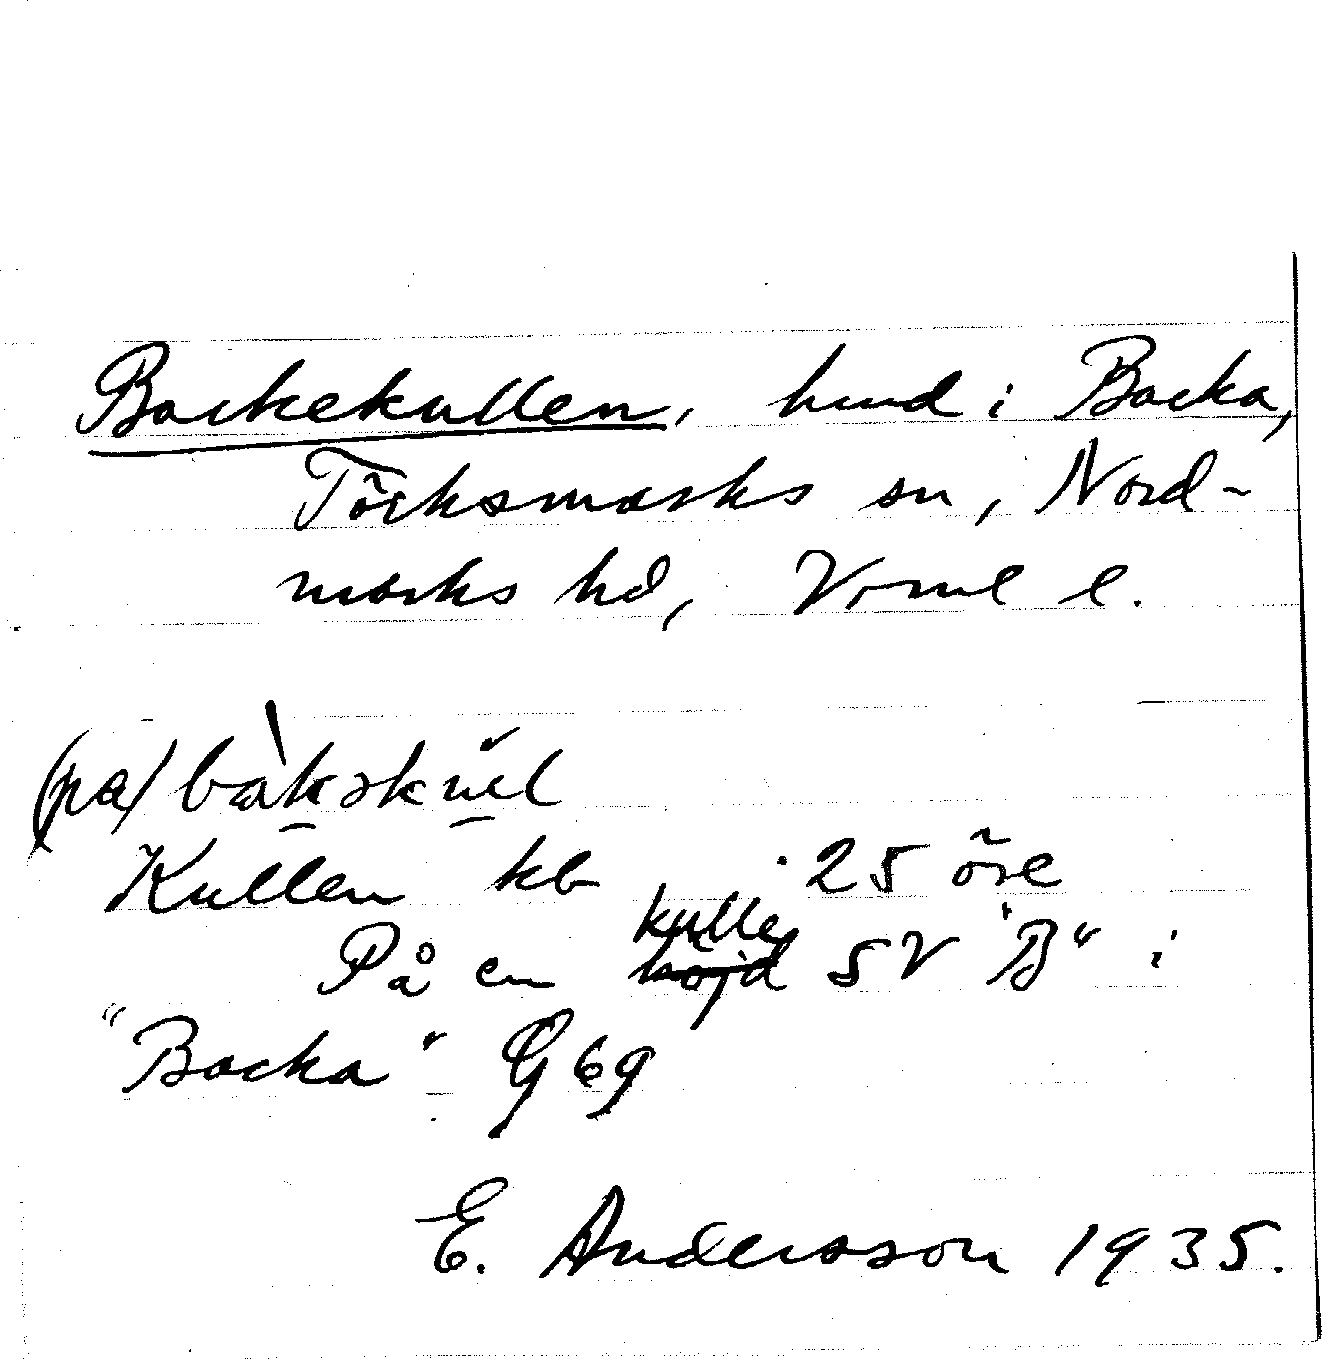 Backekullen, hmd i Backa,
Töcksmarks sn, Nord-
marks hd, Värml l.
(på) bakəkul
Kullen kb 25 öre
kulle
På en höjd SV "B" i
"Backa" G 69
E. Andersson 1935.